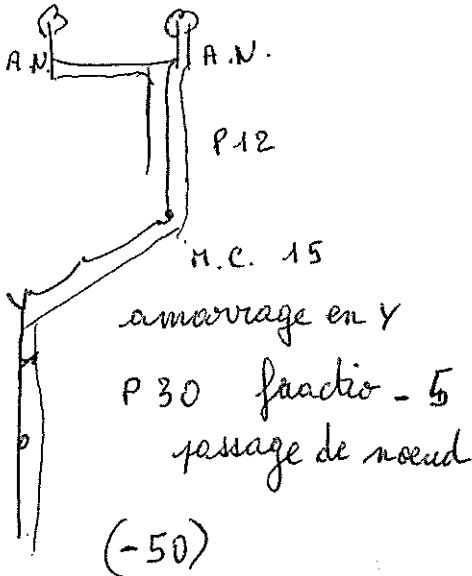 A.N. A.N.
P12
M.C. 15
amarrage en Y
P 30 fractio - 5
passage de noeud
(-50)